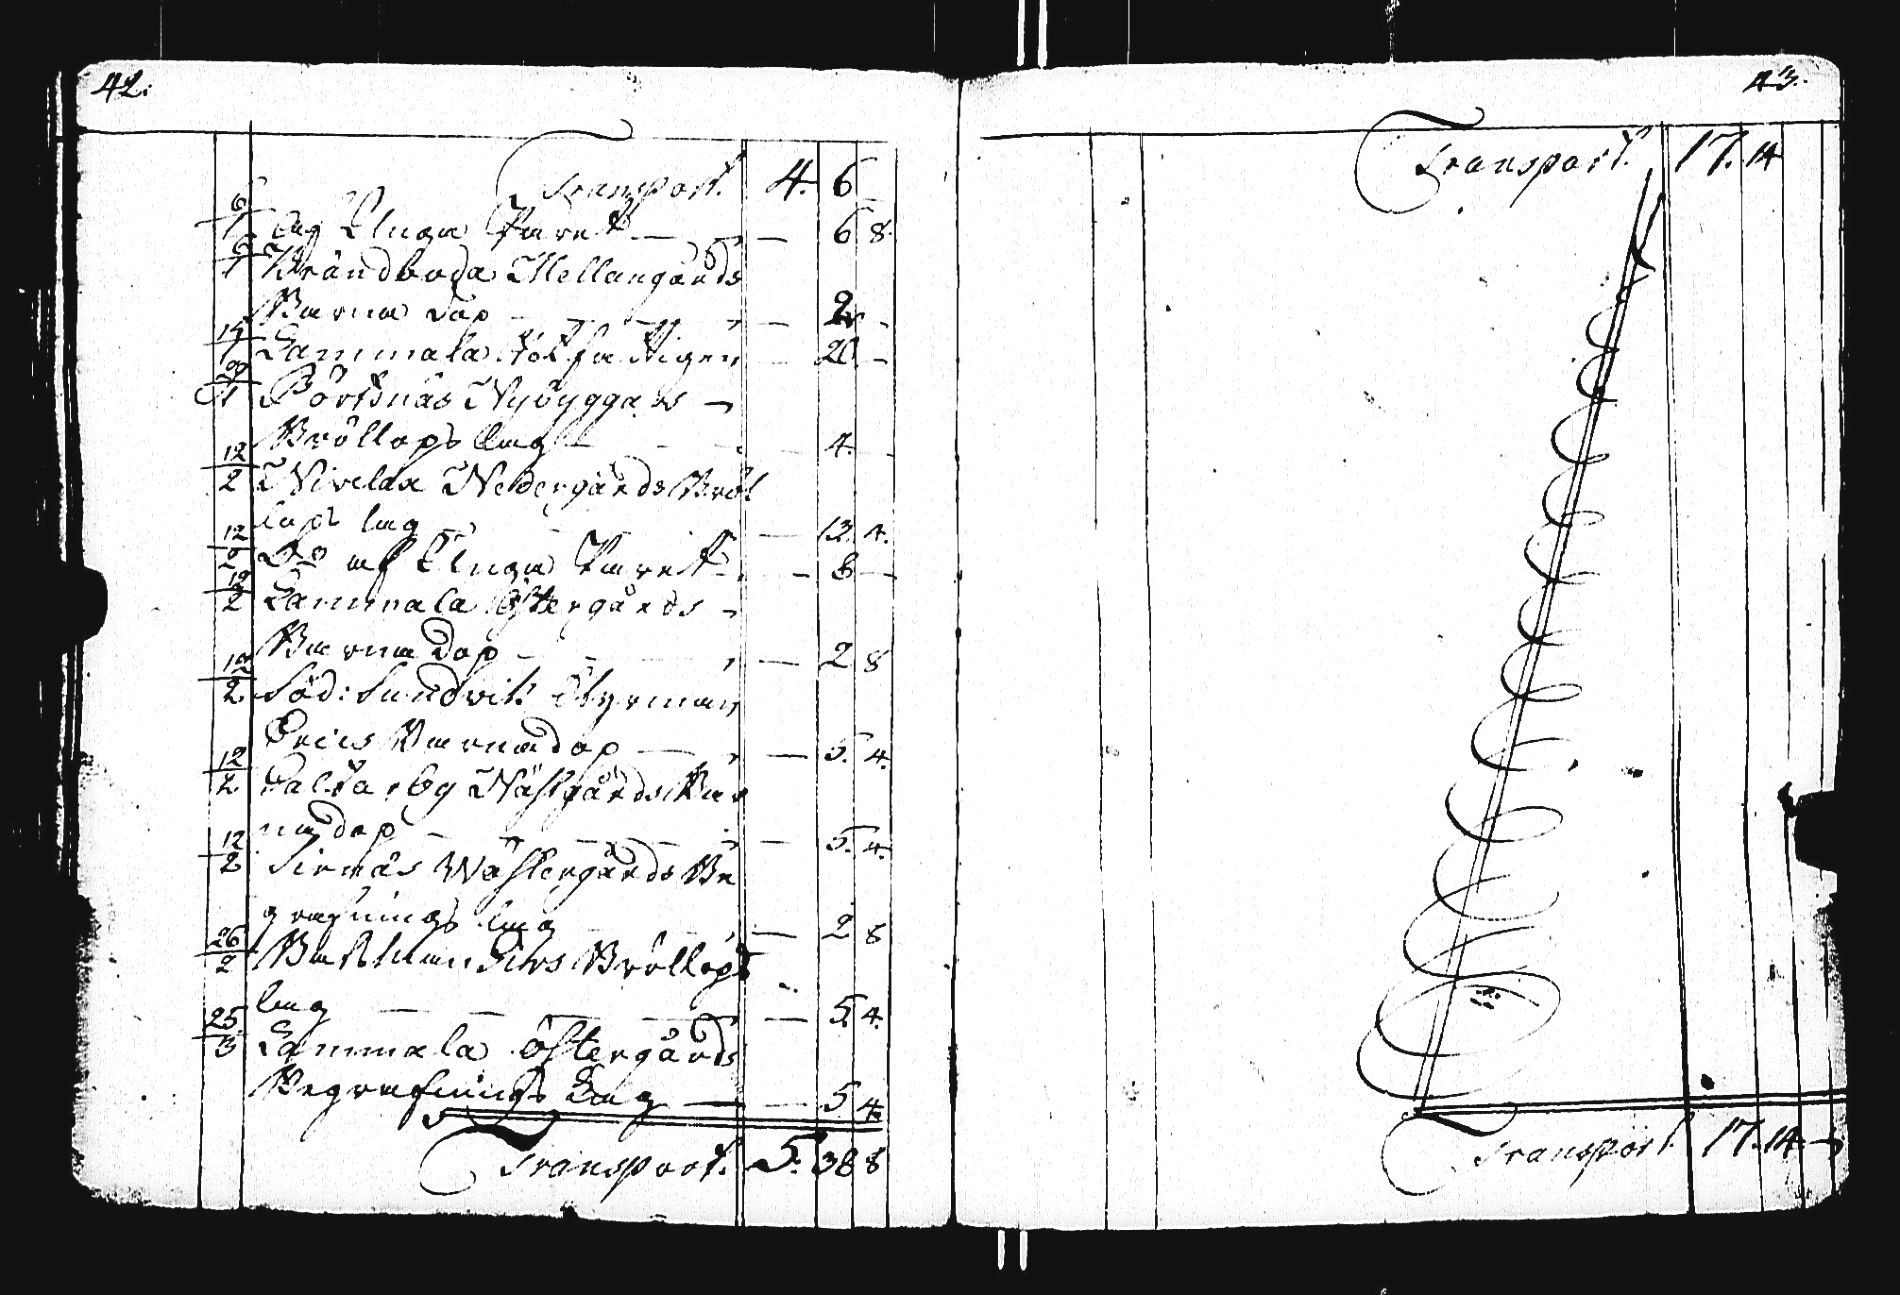 42.
Transport. 4. 6
6/1 af Unga Paret — — 6 8.
6/1 Brändboda Mellangårds
Barna dop — 2 -
Gammala 20. -
Börtsnäs Nybyggars
Bröllops lag — 4. -
12/2 Nivelax Nedergårds Bröl
lops lag — 13. 4.
12/2 Do af Unga Paret — 8 —
12/2 Gammala Östergårds
Barna dop — 2 8
12/2 Söd: Sundvik Styrman
Erics Barnadop — 5. 4.
12/2 by Nästgårds Bar
nadop — 5. 4.
12/2 Wästergårds Be
grafnings lag — 2 8
26/2 Bröllops
lag — 5. 4.
25/3 Gammala Östergårds
Begrafnings Lag — 5 4.
Transport. 5. 38 8
43.
Transport. 17. 14
Transport 17. 14. -